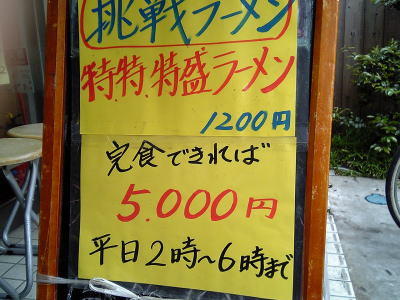 挑戦ラーメン
特.特.特盛ラーメン
1200円
完食できれば
5.000円
平日2時〜6時まで